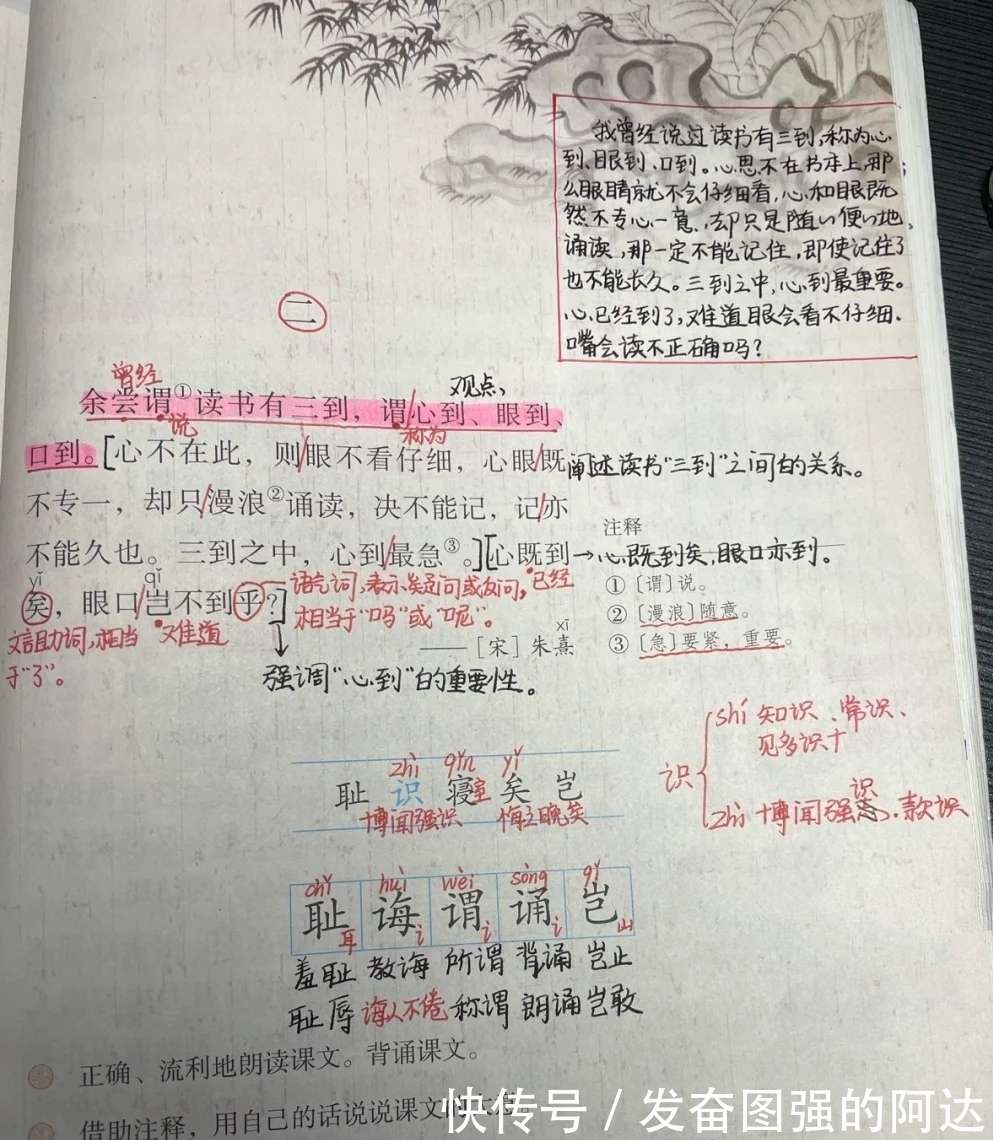 我曾经说过读书有三到,称为心
到、眼到、口到。心思不在书本上,那
么眼睛就不会仔细看,心和眼既
然不专心一意,却只是随随便便地
诵读,那一定不能记住,即使记住了
也不能长久。三到之中,心到最重要。
心已经到了,难道眼会看不仔细.
嘴会读不正确吗?
二
曾经
观点
余尝谓①读书有三到，谓心到、眼到、
说
称为
口到。[心不在此，则眼不看仔细，心眼既
阐述读书"三到"之间的关系。
不专一，却只漫浪②诵读，决不能记，记亦
不能久也。三到之中，心到最急③。][心既到
→心既到矣,眼口亦到。
yǐ
qǐ
矣，眼口岂不到乎?]
语气词,表示疑问或反问,
相当于"吗"或"呢"。
已经
文言助词,相当
于"了"。
难道
xī
——［宋］朱熹
强调"心到"的重要性。
注释
①〔谓〕说。
②〔漫浪〕随意。
③〔急〕要紧，重要。
zhì qǐn yǐ
耻 识 寝室 矣 岂
博闻强识 悔之晚矣
识
shí 知识、常识、
见多识广
zhì 博闻强识.款识
chǐ huì wèi sòng qǐ
耻 诲 谓 诵 岂
耳 讠 讠 讠 山
羞耻 教诲 所谓 背诵 岂止
耻辱 诲人不倦 称谓 朗诵 岂敢
正确、流利地朗读课文。背诵课文。
借助注释，用自己的话说说课文
快传号 / 发奋图强的阿达